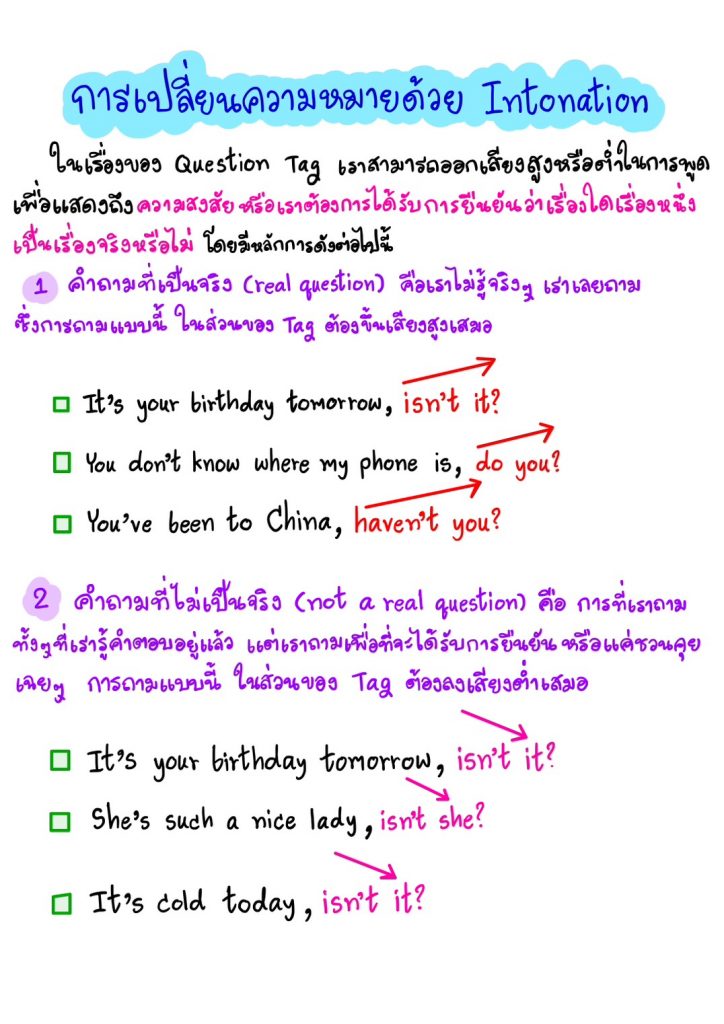 การเปลี่ยนความหมายด้วย Intonation
ในเรื่องของ Question Tag เราสามารถออกเสียงสูงหรือต่ำในการพูด
เพื่อแสดงถึงความสงสัย หรือเราต้องการได้รับการยืนยันว่าเรื่องใดเรื่องหนึ่ง
เป็นเรื่องจริงหรือไม่ โดยมีหลักการดังต่อไปนี้
1 คำถามที่เป็นจริง (real question) คือเราไม่รู้จริงๆ เราเลยถาม
ซึ่งการถามแบบนี้ ในส่วนของ Tag ต้องขึ้นเสียงสูงเสมอ
It's your birthday tomorrow, isn't it?
You don't know where my phone is, do you?
You've been to China, haven't you?
2 คำถามที่ไม่เป็นจริง (not a real question) คือ การที่เราถาม
ทั้งๆที่เรารู้คำตอบอยู่แล้ว แต่เราถามเพื่อที่จะได้รับการยืนยัน หรือแค่ชวนคุย
เฉยๆ การถามแบบนี้ ในส่วนของ Tag ต้องลงเสียงต่ำเสมอ
It's your birthday tomorrow, isn't it?
She's such a nice lady, isn't she?
It's cold today, isn't it?